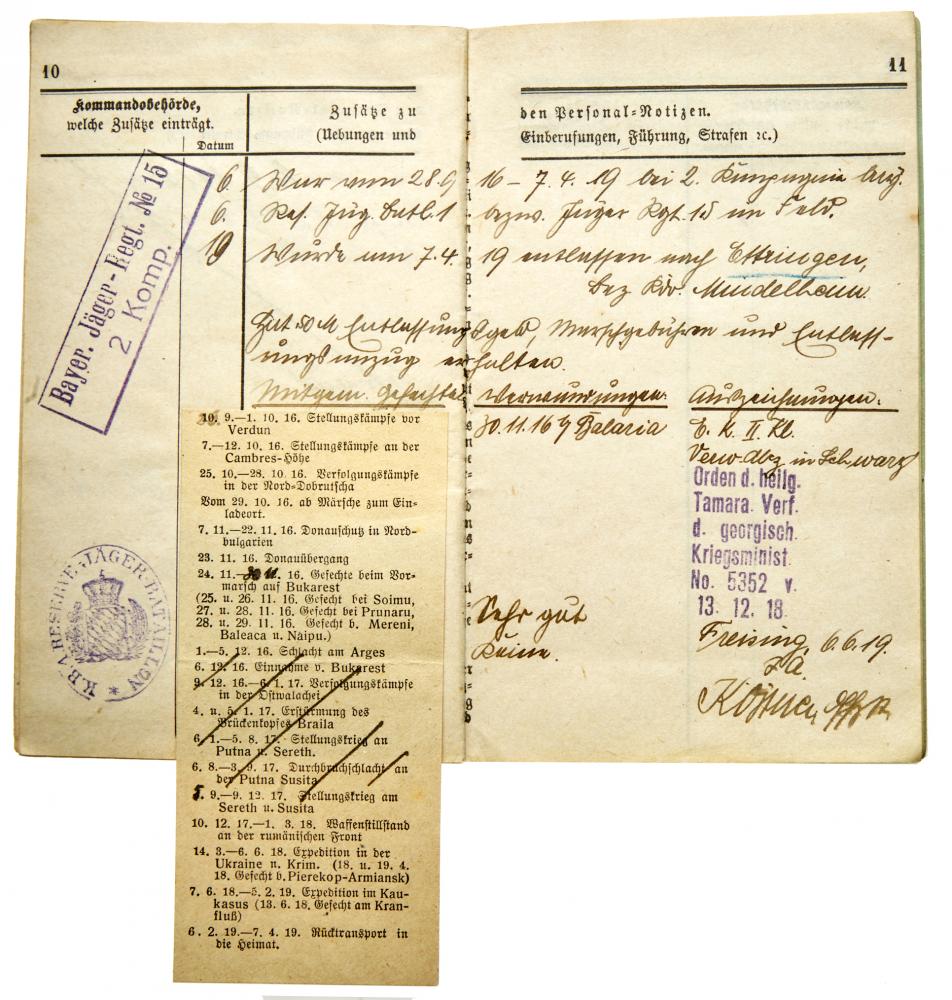 10
11
Kommandobehörde,
welche Zusätze einträgt.
Datum
Zusätze zu
(Uebungen und
den Personal-Notizen.
Einberufungen, Führung, Strafen ꝛc.)
Bayer. Jäger-Regt. № 15
2 Komp.
6.
6.
19
War vom 28.9 16 – 7. 4. 19 bei 2. Kompagnie
Res. Jäg. Batl. 1 bezw. Jäger Rgt. 15 im Feld.
Wurde am 7.4. 19 entlassen nach Ettringen,
Bez. Kdo. Mindelheim.
Hat 50 M Entlassungsgeld, Marschgebühren und Entlass-
ungsanzug erhalten.
Mitgem. Gefechte
Verwundungen.
Auszeichnungen.
30.11.16 Balaria
E. K. II Kl.
Verw. Abz in Schwarz
Orden d. heilg.
Tamara. Verf.
d. georgisch.
Kriegsminist.
No. 5352 v.
13. 12. 18.
Sehr gut
Keine.
Freising, 6.6.19.
10. 9.—1. 10. 16. Stellungskämpfe vor
Verdun
7.—12. 10. 16. Stellungskämpfe an der
Cambres-Höhe
25. 10.—28. 10. 16. Verfolgungskämpfe
in der Nord-Dobrutscha
Vom 29. 10. 16. ab Märsche zum Ein-
ladeort.
7. 11.—22. 11. 16. Donauschutz in Nord-
bulgarien
23. 11. 16. Donauübergang
24. 11.—30. 11. 16. Gefechte beim Vor-
marsch auf Bukarest
(25. u. 26. 11. 16. Gefecht bei Soimu,
27. u. 28. 11. 16. Gefecht bei Prunaru,
28. u. 29. 11. 16. Gefecht b. Mereni,
Baleaca u. Naipu.)
1.—5. 12. 16. Schlacht am Arges
6. 12. 16. Einnahme v. Bukarest
9. 12. 16.—6. 1. 17. Verfolgungskämpfe
in der Ostwalachei
4. u. 5. 1. 17. Erstürmung des
Brückenkopfes Braila
6. 1.—5. 8. 17. Stellungskrieg an
Putna u. Sereth.
6. 8.—3. 9. 17. Durchbruchschlacht an
der Putna Susita
5. 9.—9. 12. 17. Stellungskrieg am
Sereth u. Susita
10. 12. 17.—1. 3. 18. Waffenstillstand
an der rumänischen Front
14. 3.—6. 6. 18. Expedition in der
Ukraine n. Krim. (18. u. 19. 4.
18. Gefecht b. Pierekop-Armiansk)
7. 6. 18.—5. 2. 19. Expedition im Kau-
kasus (13. 6. 18. Gefecht am Kran-
fluß)
6. 2. 19.—7. 4. 19. Rücktransport in
die Heimat.
K.B. 1. RESERVE-JÄGER-BATAILLON